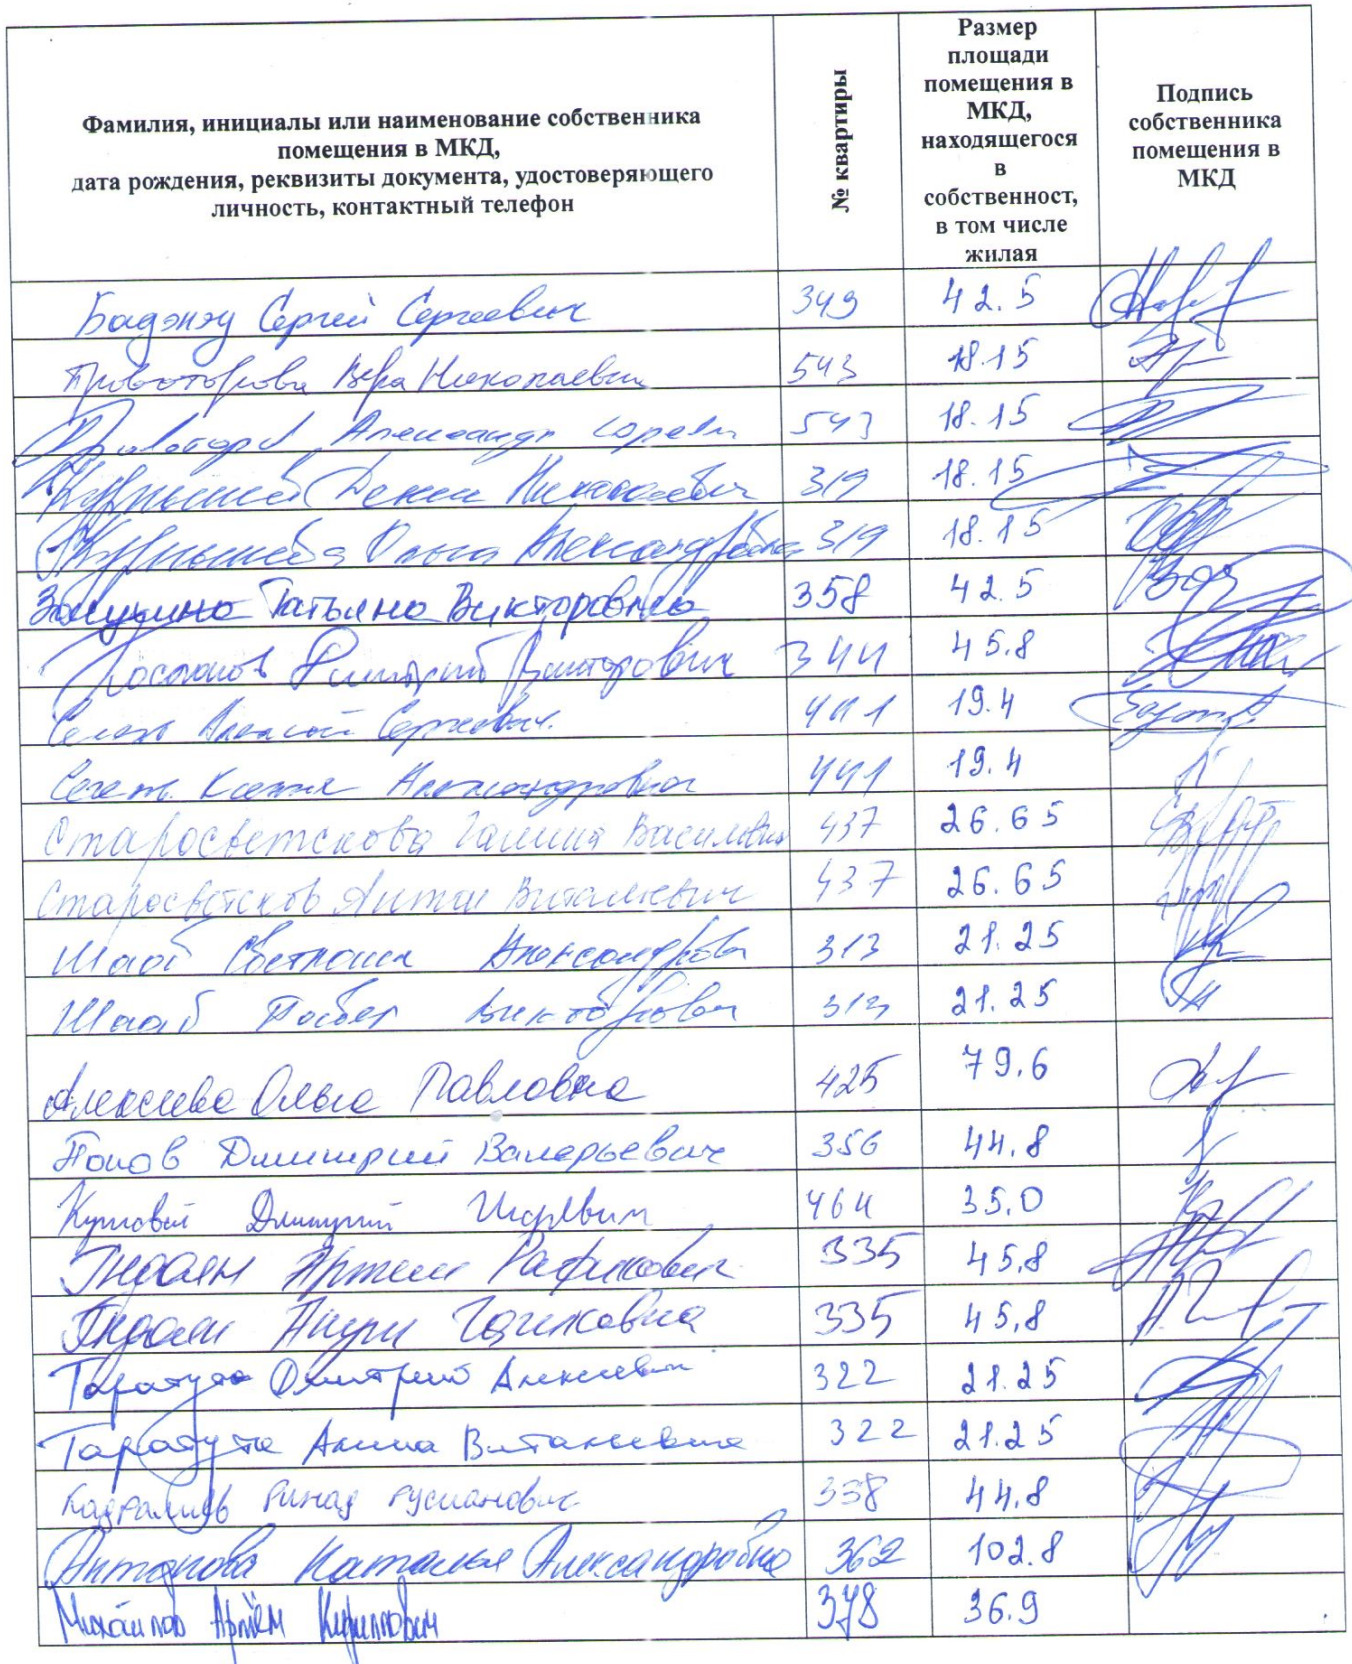 Фамилия, инициалы или наименование собственника
помещения в МКД,
дата рождения, реквизиты документа, удостоверяющего
личность, контактный телефон
№ квартиры
Размер
площади
помещения в
МКД,
находящегося
в
собственност,
в том числе
жилая
Подпись
собственника
помещения в
МКД
Сергей Сергеевич 349 42.5
Вера Николаевна 543 18.15
Александр 543 18.15
Денис Николаевич 319 18.15
Ольга Александровна 319 18.15
Татьяна Викторовна 358 42.5
Дмитрий Викторович 344 45.8
Алексей Сергеевич 441 19.4
Александровна 441 19.4
Старосветскова Галина Васильевна 437 26.65
Старосветсков Антон Витальевич 437 26.65
Шааб Светлана Александровна 313 21.25
Шааб Викторович 313 21.25
Алексеева Ольга Павловна 425 79.6
Попов Дмитрий Валерьевич 356 44.8
Дмитрий Игоревич 464 35.0
Артем Рафикович 335 45.8
Гагиковна 335 45,8
Таратута Дмитрий Алексеевич 322 21.25
Таратута Витальевна 322 21.25
Ринад Русланович 338 44.8
Антонова Наталья Александровна 362 102.8
Михайлов Артём Кириллович 378 36.9